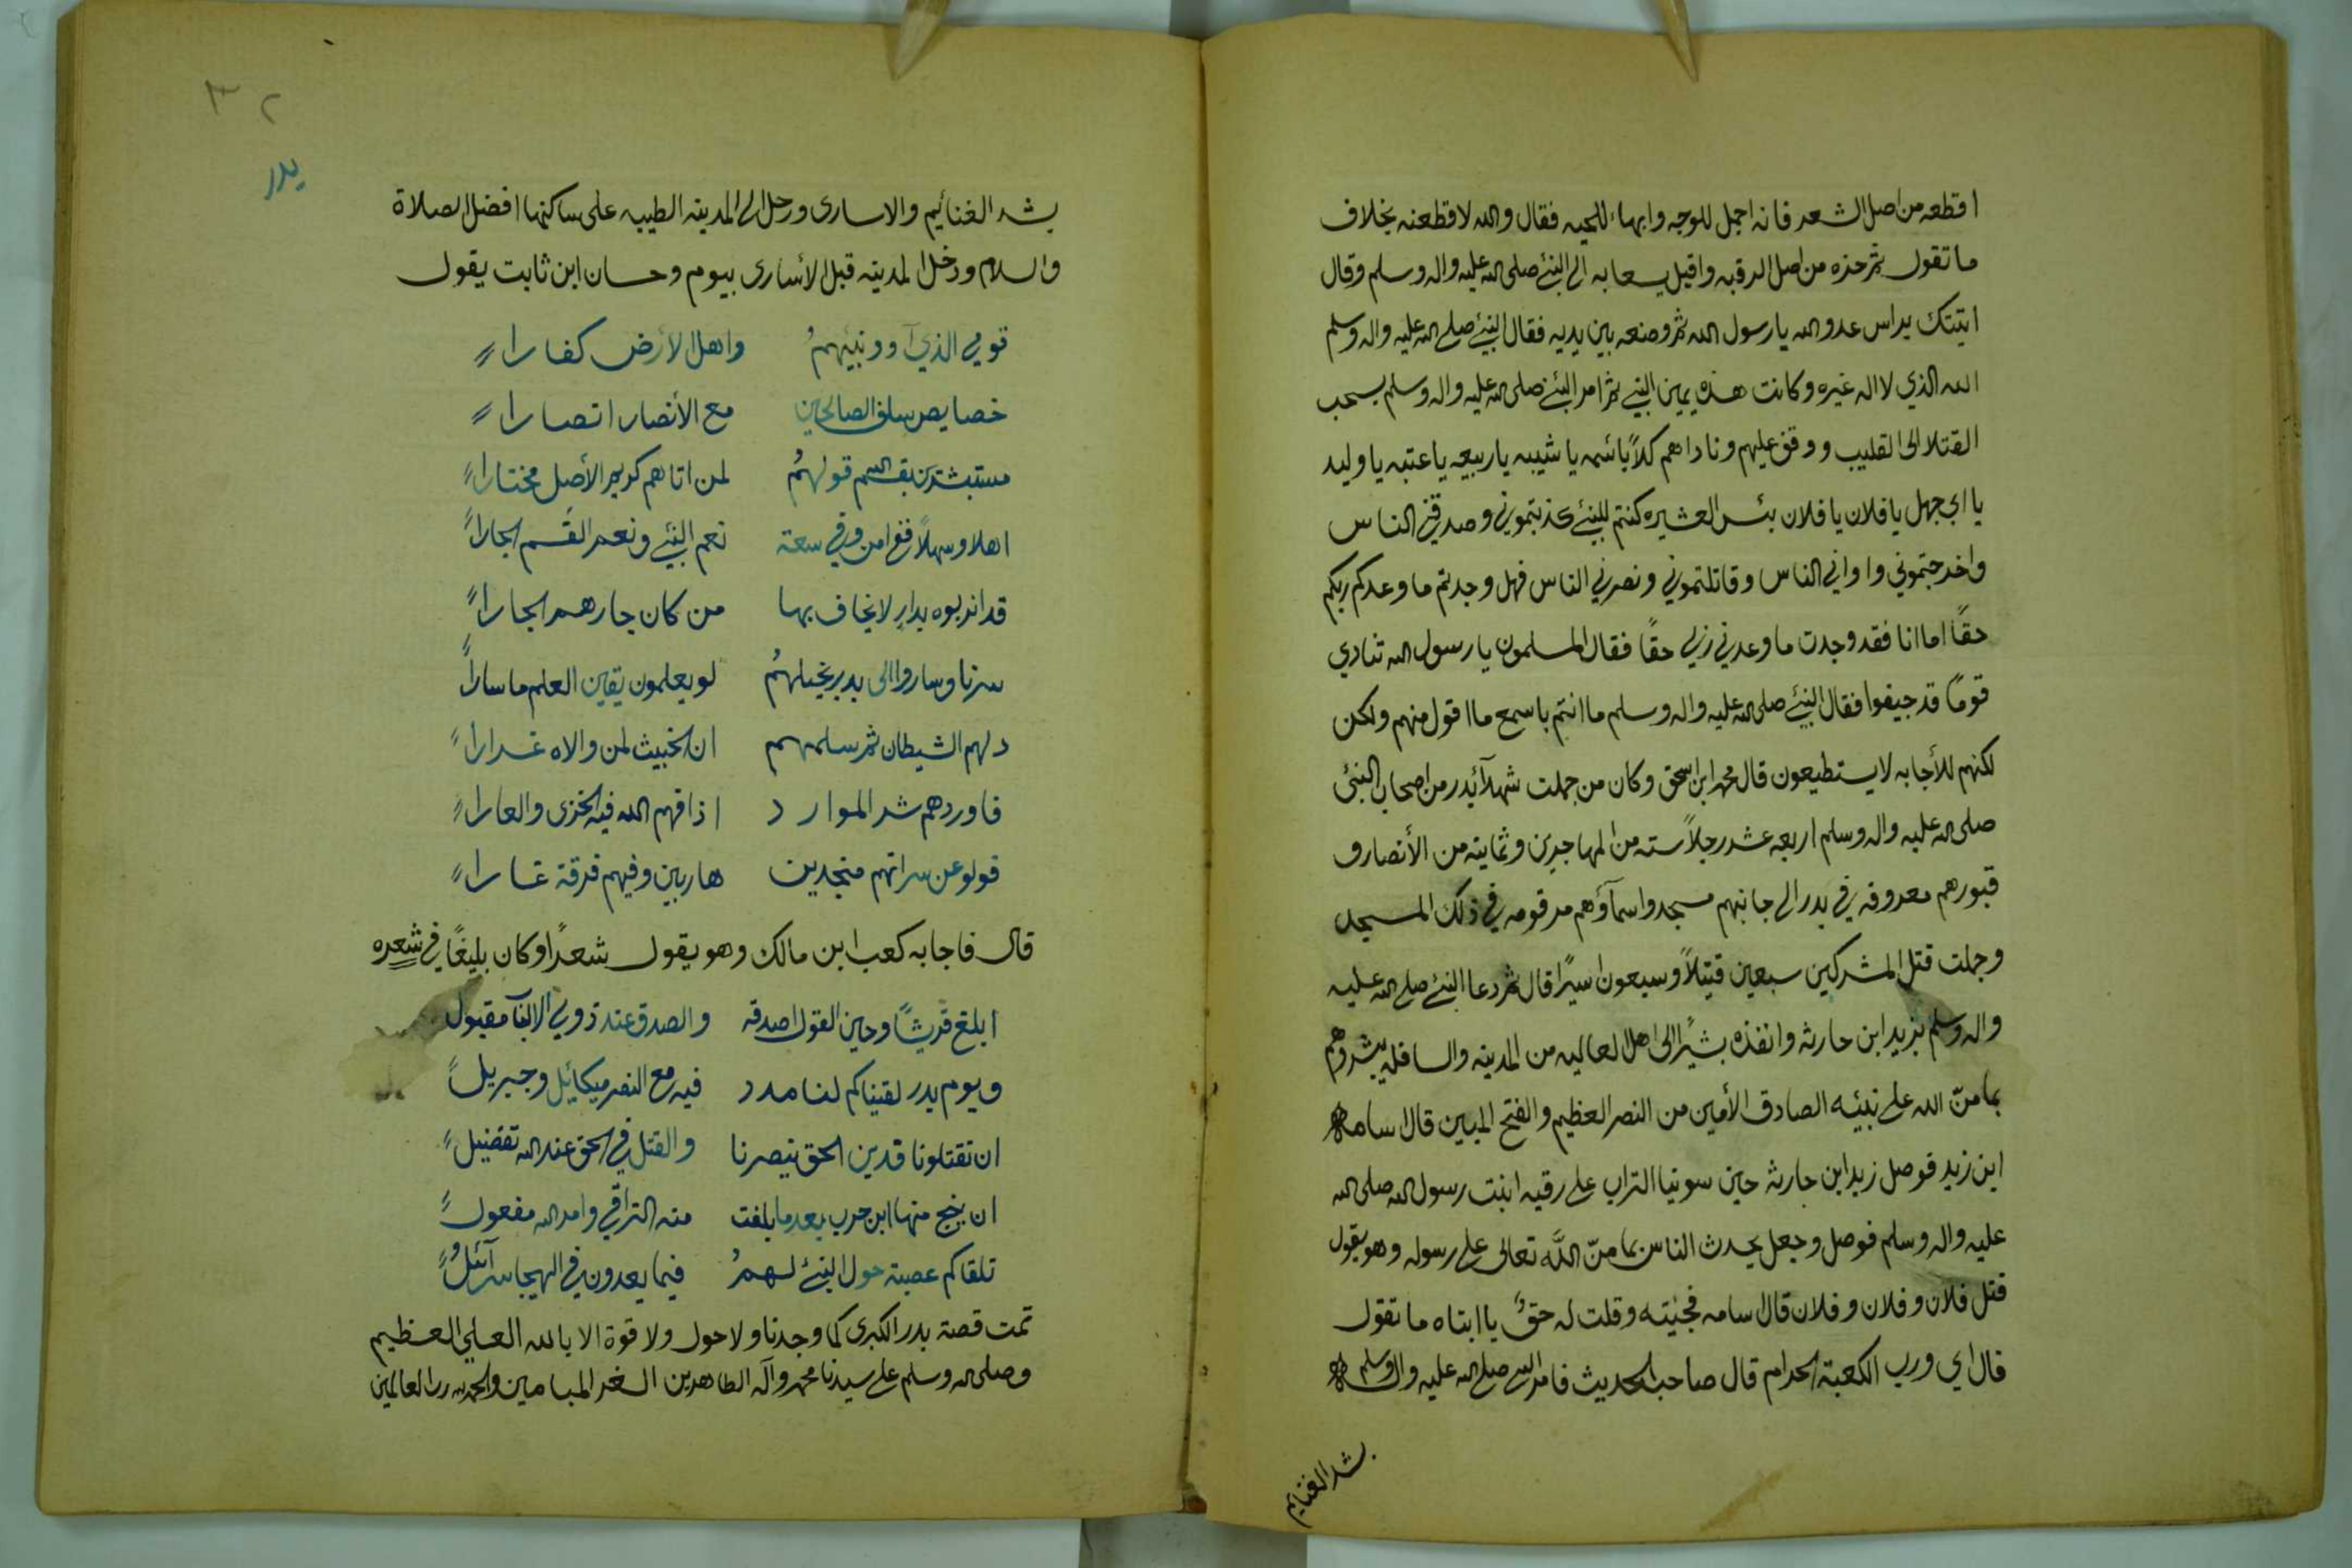 اقطعه من اصل الشعر فانه اجمل للوجه وابهاء للحيه فقال والله لاقطعنه بخلاف
ما تقول ثم حزه من اصل الرقبه واقبل يسعا به الى النبئ صلى الله عليه واله وسلم وقال
اتيتك براس عدو الله يا رسول الله ثم وضعه بين يديه فقال النبئ صلى الله عليه واله وسلم
الله الذي لا اله غيره وكانت هذه يمين النبي ثم امر النبئ صلى الله عليه واله وسلم بسحب
القتلا الى القليب ووقف عليهم وناداهم كلاً باسمه يا شيبه يا ربيعه يا عتبه يا وليد
يا ابي جهل يا فلان يا فلان بئس العشيره كنتم للنبئ كذبتموني وصدقني الناس
واخرجتموني واواني الناس وقاتلتموني ونصرني الناس فهل وجدتم ما وعدكم ربكم
حقاً اما انا فقد وجدت ما وعدني ربي حقاً فقال المسلمون يا رسول الله تنادي
قوماً قد جيفوا فقال النبئ صلى الله عليه واله وسلم ما انتم باسمع ما اقول منهم ولكن
لكنهم للأجابه لا يستطيعون قال محمد ابن اسحق وكان من جملت شهدآئ بدر من اصحاب النبئ
صلى الله عليه واله وسلم اربعه عشر رجلاً سته من المهاجرين وثمانيه من الأنصار وف
قبورهم معروفه في بدر الى جانبهم مسجد واسمآؤهم مرقومه في ذلك المسجد
وجملت قتل المشركين سبعين قتيلاً وسبعون اسيرًا قال ثم دعا النبئ صلى الله عليه
واله وسلم بزيد ابن حارثه وانفذه بشيرًا الى اهل العاليه من المدينه والسافله يبشروهم
بما منّ الله على نبيئه الصادق الأمين من النصر العظيم والفتح المبين قال اسامه
ابن زيد فوصل زيد ابن حارثه حين سوينا التراب على رقيه ابنت رسول الله صلى الله
عليه واله وسلم فوصل وجعل يحدث الناس بما منّ اللّه تعالى على رسوله وهو يقول
قتل فلان وفلان وفلان قال اسامه فجئيته وقلت له حقٌ يا ابتاه ما تقول
قال اي ورب الكعبة الحرام قال صاحب الحديث فامر النبي صلى الله عليه واله وسلم
بشد الغنايم
٣٢
بدر
بشد الغنائيم والاسارى ورحل الى المدينه الطيبه على ساكنها افضل الصلاة
والسلام ودخل المدينه قبل الأسارى بيوم وحسان ابن ثابت يقول
قومي الذي آوو نبيئهمُ واهل الأرض كفارا
خصايص سلف الصالحين مع الأنصار انصارا
مستبشرين بقسم قولهمُ لمن اتاهم كريم الأصل مختارا
اهلا وسهلاً ففي امن وفي سعة نعم النبئ ونعم القَسم الجارا
قد انزلوه بدارٍ لا يخاف بها من كان جارهم الجارا
سرنا وساروا الى بدر بخيلهمُ لو يعلمون يقين العلم ما سارا
دلهم الشيطان ثم سلمهم ان الخبيث لمن والاه غدارا
فاوردهم شر الموارد اذاقهم الله فيه الخزى والعارا
فولو عن سراتهم منجدين هاربين وفيهم فرقة غارا
قال فاجابه كعب ابن مالك وهو يقول شعرًا وكان بليغًا في شعره
ابلغ قريشًا وحين القول اصدقه والصدق عند ذوي الالباب مقبول
ويوم بدر لقيناكم لنا مدد فيه مع النصر ميكائيل وجبريل
ان تقتلونا فدين الحق ينصرنا والقتل في الحق عند الله تفضيل
ان ينج منها ابن حرب بعدما بلغت منه التراقي وامر الله مفعول
تلقاكم عصبة حول النبئ لهمُ فيما يعدون في الهيجا سرآئيلُ
تمت قصة بدر الكبرى كما وجدنا ولا حول ولا قوة الا بالله العلي العظيم
وصلى الله وسلم على سيدنا محمد وآله الطاهرين الغر الميامين والحمد لله رب العالمين